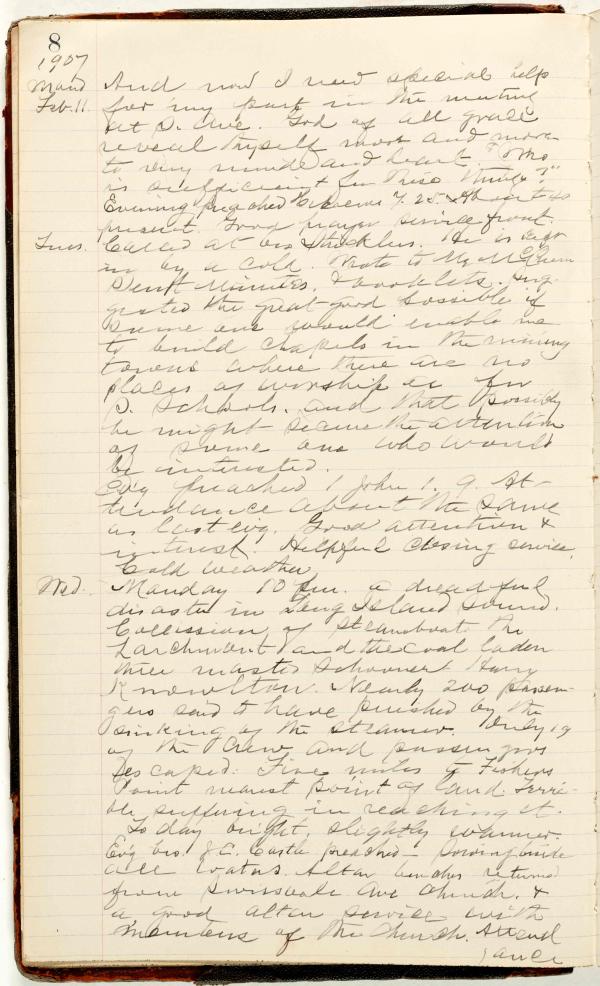 8
1907
Mond And now I need special help
Feb. 11. for my part in the meeting
at S. Ave. God of all grace
reveal thyself more and more
to my mind and heart. "Who
is sufficient for these things?"
Evening preached Hebrews 7. 25. About 40
present. Good prayer service front.
Tues. Called at bro Stricklers. He is kept
in by a cold. Wrote to
Sent Minutes, & booklets. Sug-
gested the great good possible if
some one would enable me
to build chapels in the mining
towns where there are no
places of worship or for
S. Schools. and that possibly
he might secure the attention
of some one who would
be interested.
Ev'g preached 1 John 1. 9. At-
tendance about the same
as last ev'g. Good attention &
interest. Helpful closing service.
Cold weather.
Wed. Monday 10 P.m. a dreadful
disaster in Long Island Sound.
Collission of steamboat the
Larchmont and the coal laden
three masted Schooner Harry
Knowlton. Nearly 200 passen-
gers said to have perished by the
sinking of the steamer. Only 19
of the crew and passengers
escaped. Five miles to Fishers
Point nearest point of land. Terri-
ble suffering in reaching it.
To day bright, slightly warmer.
Ev'g bro. J. E. Castle preached — Sowing beside
all waters. Altar benches returned
from Swissvale Ave Church. &
a good altar service with
members of the church. Attend
ance